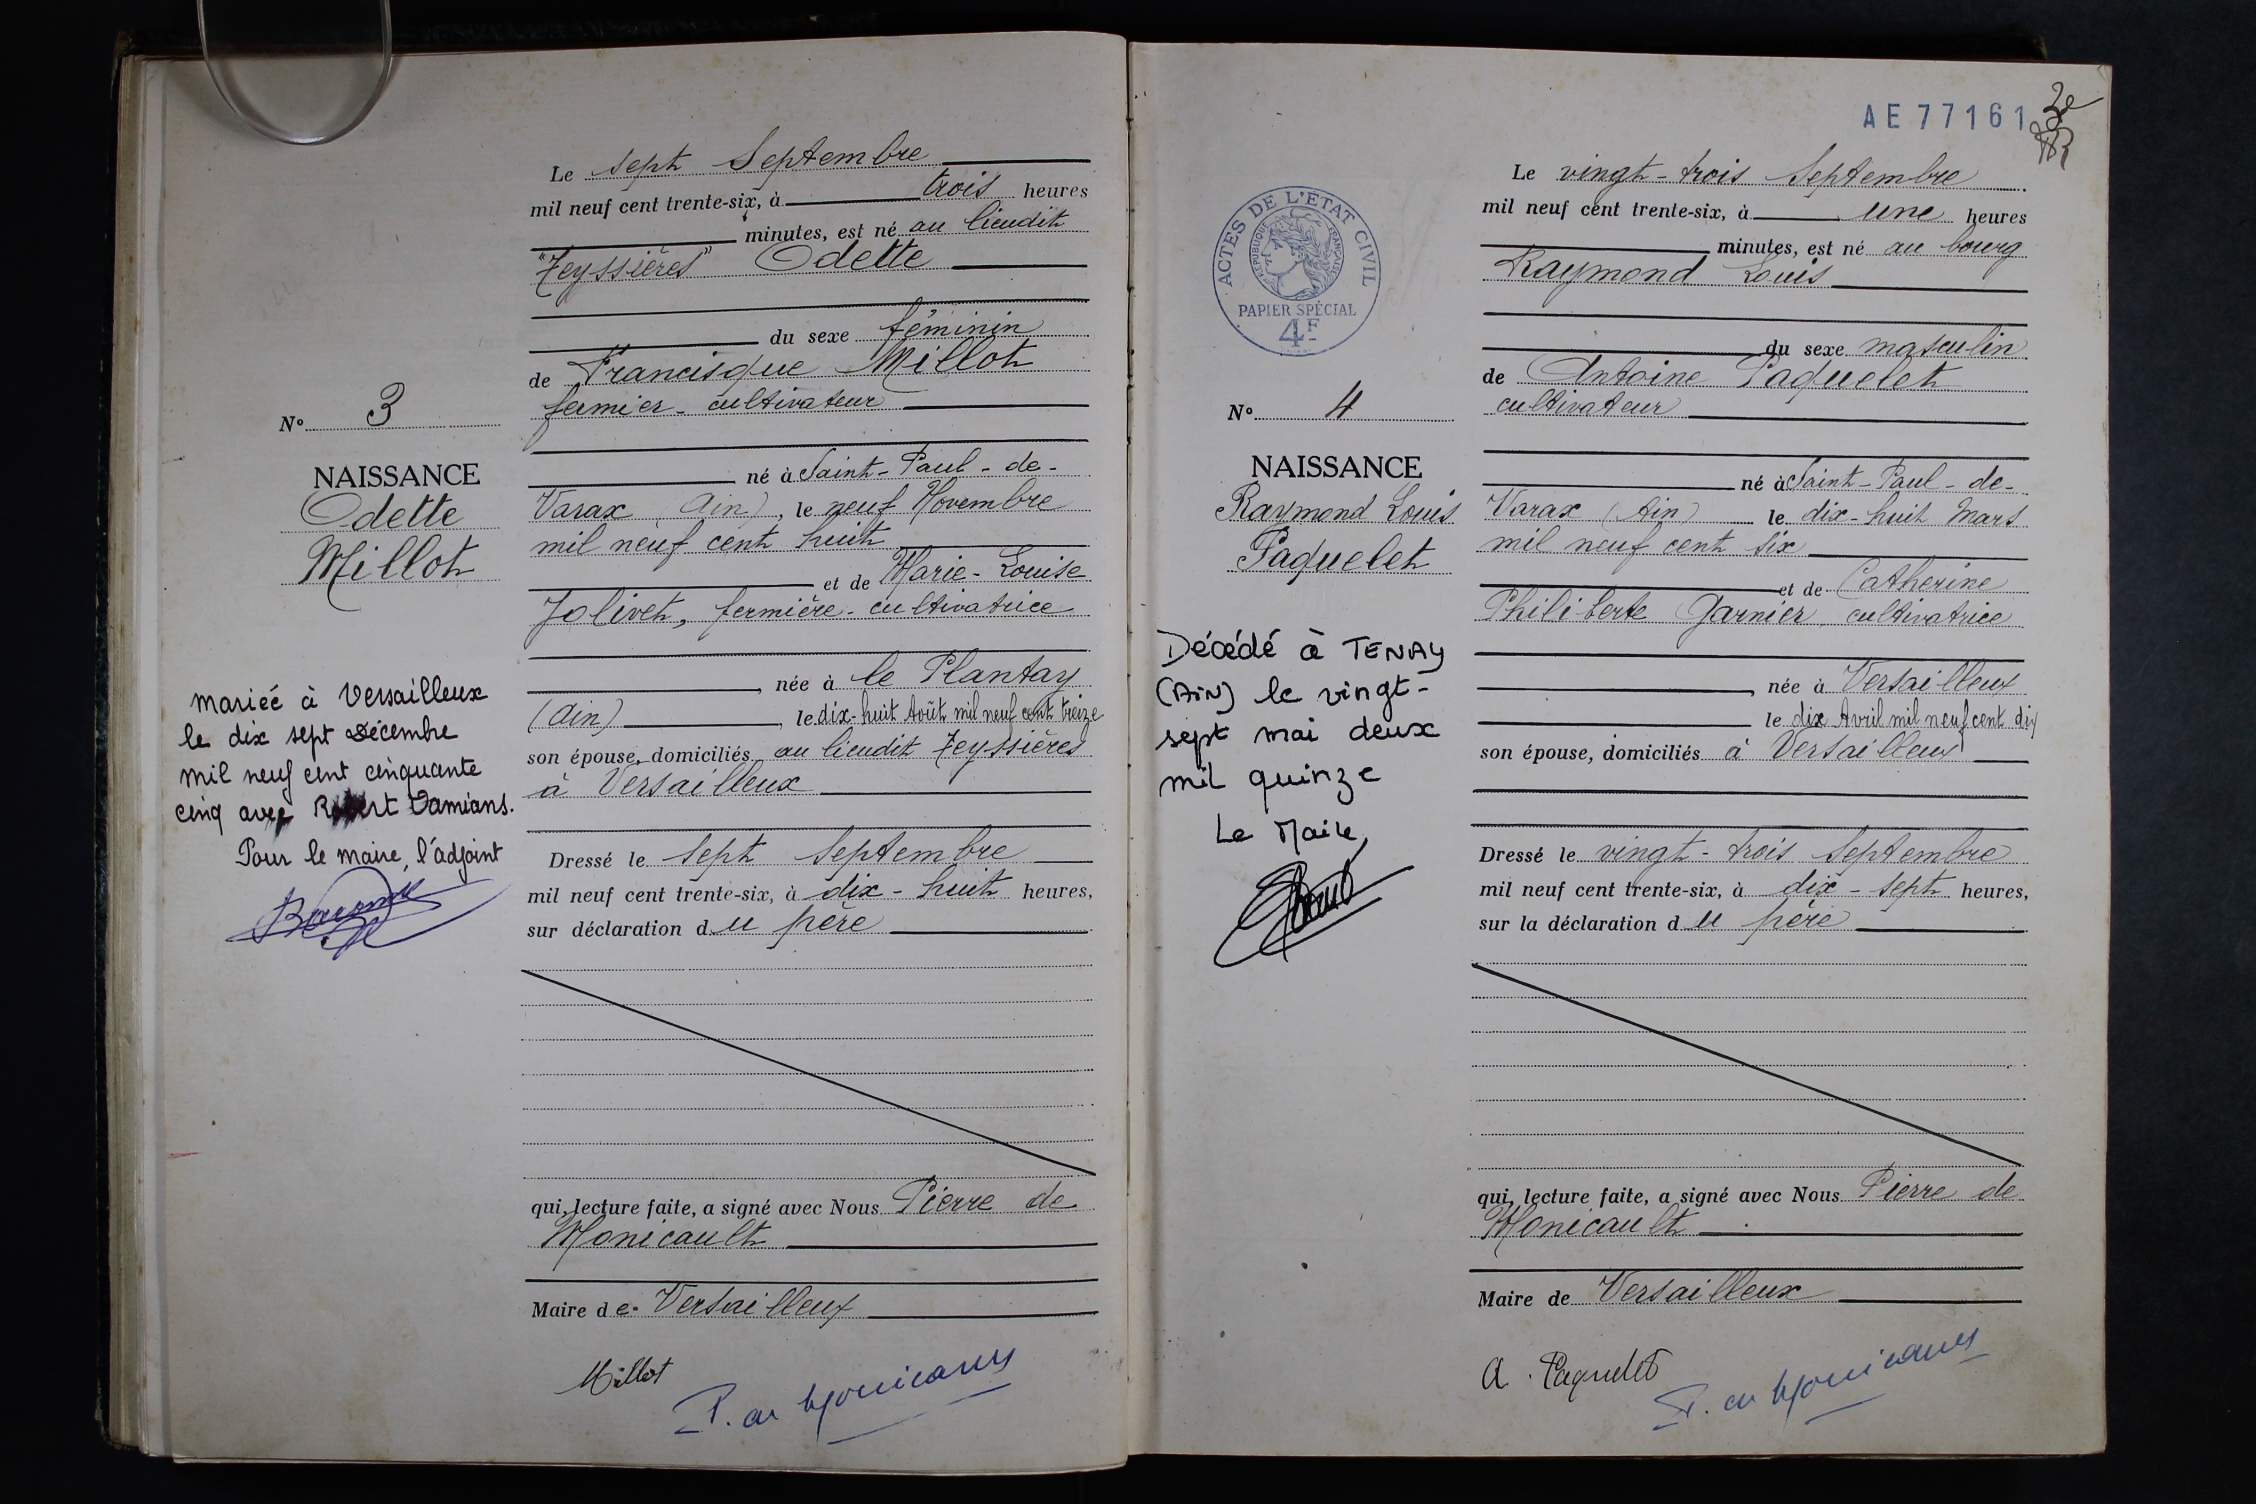 Le sept Septembre
mil neuf cent trente-six, à trois heures
minutes, est né au lieudit
"Zeyssières" Odette
du sexe féminin
de Francisque Millot
fermier-cultivateur
né à Saint-Paul-de-
Varax (Ain), le neuf Novembre
mil neuf cent huit
et de Marie-Louise
Jolivet, fermière-cultivatrice
, née à le Plantay
(Ain), le dix-huit Août mil neuf cent treize
son épouse, domiciliés au lieudit Zeyssières
à Versailleux
Dressé le sept Septembre
mil neuf cent trente-six, à dix-huit heures,
sur déclaration du père
qui, lecture faite, a signé avec Nous Pierre de
Monicault
Maire de Versailleux
Millot
P. de Monicault
N° 3
NAISSANCE
Odette
Millot
mariée à Versailleux
le dix sept Décembre
mil neuf cent cinquante
cinq avec Robert Damians.
Pour le maire, l'adjoint
AE77161
ACTES DE L'ETAT CIVIL
REPUBLIQUE FRANÇAISE
PAPIER SPÉCIAL
4F
N° 4
NAISSANCE
Raymond Louis
Paquelet
Décédé à TENAY
(AiN) le vingt-
sept mai deux
mil quinze
Le Maire,
Le vingt-trois Septembre
mil neuf cent trente-six, à une heures
minutes, est né au bourg
Raymond Louis
du sexe masculin
de Antoine Paquelet
cultivateur
né à Saint-Paul-de-
Varax (Ain) le dix-huit Mars
mil neuf cent six
et de Catherine
Philiberte Garnier, cultivatrice
, née à Versailleux
le dix Avril mil neuf cent dix
son épouse, domiciliés à Versailleux
Dressé le vingt-trois Septembre
mil neuf cent trente-six, à dix-sept heures,
sur la déclaration du père
qui, lecture faite, a signé avec Nous Pierre de
Monicault
Maire de Versailleux
A. Paquelet
P. de Monicault